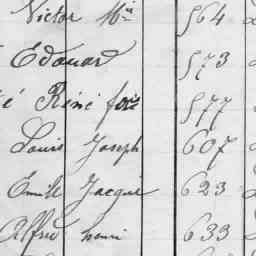 Victor Mie 564
Edouard 573
é Réné fois 577
Louis Joseph 607
Emile Jacque 623
Alfred henri 633